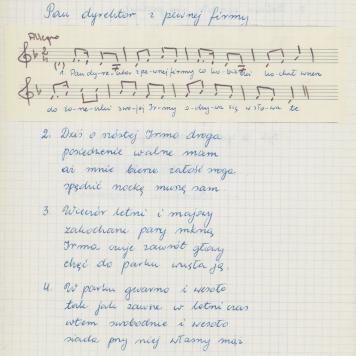 Pan dyrektor z pewnej firmy
Allegro
1. Pan dy-re-ktor z pe-wnej firmy co ko-bie-tki ko-chał wiern
do żo-ne-czki swo-jej Ir-my o-dzy-wa się w sło-wa te
2. Dziś o szóstej Irmo droga
posiedzenie walne mam
aż mnie bierze żałość sroga
spędzić nockę muszę sam
3. Wieczór letni i majowy
zakochane pary mkną
Irma czuje zawrót głowy
chęć do parku wzięła ją.
4. W parku gwarno i wesoło
tak jak zawsze w letni czas
wtem swobodnie i wesoło
siada przy niej własny mąż